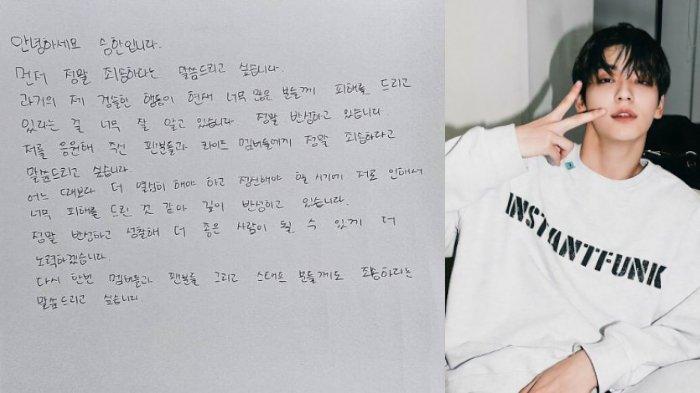 안녕하세요 승한입니다.
먼저 정말 죄송하다는 말씀드리고 싶습니다.
과거의 제 경솔한 행동이 현재 너무 많은 분들께 피해를 드리고
있다는 걸 너무 잘 알고 있습니다 정말 반성하고 있습니다
저를 응원해 주신 팬분들과 라이즈 멤버들에게 정말 죄송하다고
말씀드리고 싶습니다
어느 때보다 더 열심히 해야 하고 집중해야 할 시기에 저로 인해서
너무 피해를 드린 것 같아 깊이 반성하고 있습니다.
정말 반성하고 성찰해 더 좋은 사람이 될 수 있게 더
노력하겠습니다
다시 한번 멤버들과 팬분들 그리고 스태프 분들께도 죄송하다는
말씀드리고 싶습니다
INSTANTFUNK